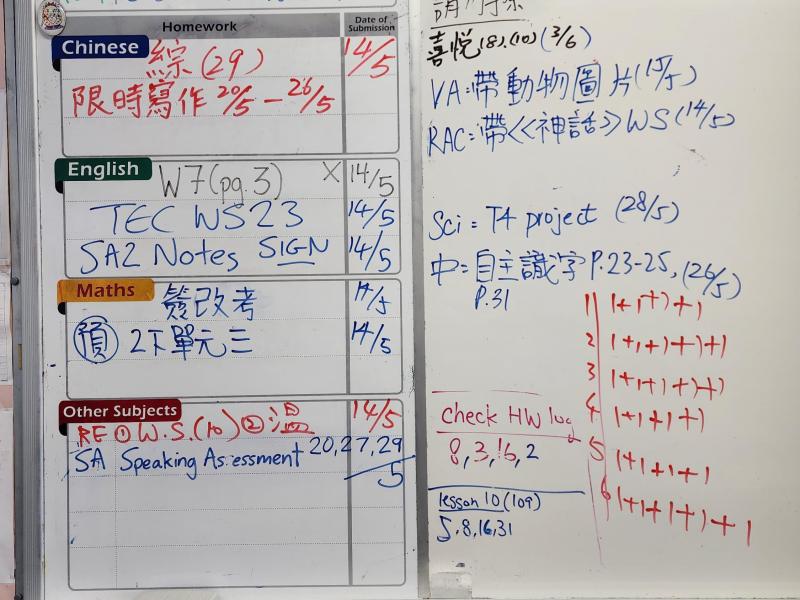 Homework
Date of Submission
Chinese
綜(29) 14/5
限時寫作 20/5 — 26/5
English
W7(pg.3) X 14/5
TEC WS23 14/5
SA2 Notes SIGN 14/5
Maths
簽改考 14/5
預 2下單元三 14/5
Other Subjects
RE ① W.S.(10) ② 溫 14/5
SA Speaking Assessment 20,27,29/5
喜悅(8),(10)(3/6)
VA=帶動物圖片(15/5)
RAC=帶<<神話>>WS(14/5)
Sci = T4 project (28/5)
中=自主識字 P.23-25, (26/5)
P.31
1 1+1+1+1
2 1+1+1+1+1
3 1+1+1+1+1
4 1+1+1+1
5 1+1+1+1
6 1+1+1+1+1
check HW log
8,3,16,2
lesson 10 (109)
5,8,16,31